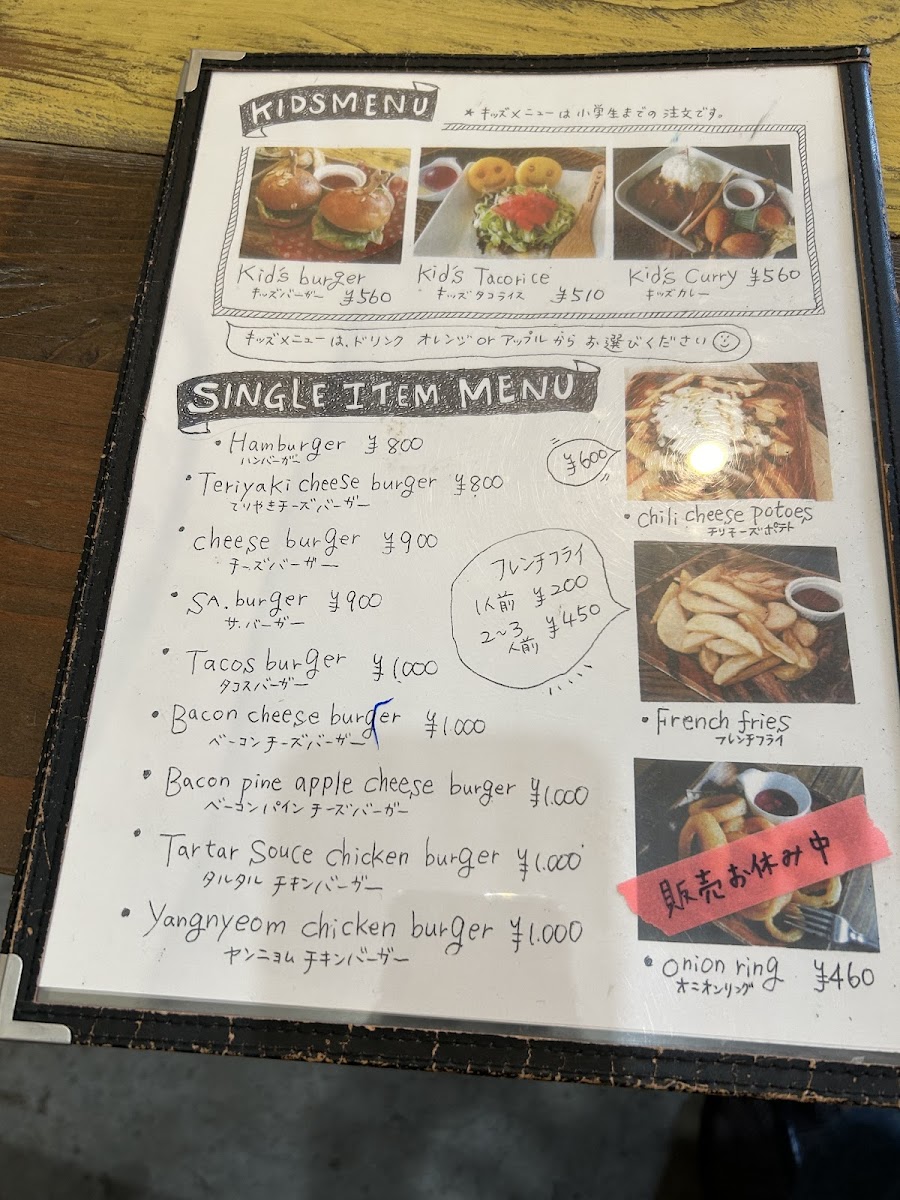 KIDSMENU
＊キッズメニューは小学生までの注文です。
Kid's burger
キッズバーガー ¥560
Kid's Tacorice
キッズタコライス ¥510
Kid's Curry ¥560
キッズカレー
キッズメニューは、ドリンク オレンジorアップルからお選びください
SINGLE ITEM MENU
・Hamburger ¥800
ハンバーガー
・Teriyaki cheese burger ¥800
てりやきチーズバーガー
・cheese burger ¥900
チーズバーガー
・SA.burger ¥900
サ.バーガー
・Tacos burger ¥1.000
タコスバーガー
・Bacon cheese burger ¥1.000
ベーコンチーズバーガー
・Bacon pine apple cheese burger ¥1.000
ベーコンパインチーズバーガー
・Tartar Souce chicken burger ¥1.000
タルタル チキンバーガー
・Yangnyeom chicken burger ¥1.000
ヤンニョム チキンバーガー
¥600
・chili cheese potoes
チリチーズポテト
フレンチフライ
1人前 ¥200
2〜3人前 ¥450
・French fries
フレンチフライ
販売お休み中
・onion ring ¥460
オニオンリング